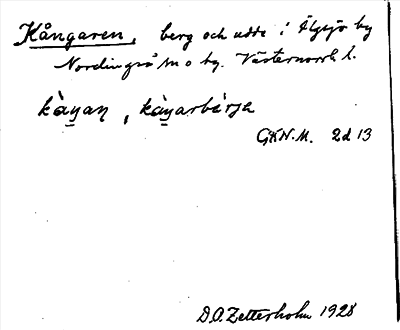 Kångaren, berg och udde i Älgsjö by
Nordingrå sn o by. Västernorrl. l.
kàŋan, kàŋarbàrjə
GKN.M. 2d 13
D.O. Zetterholm 1928